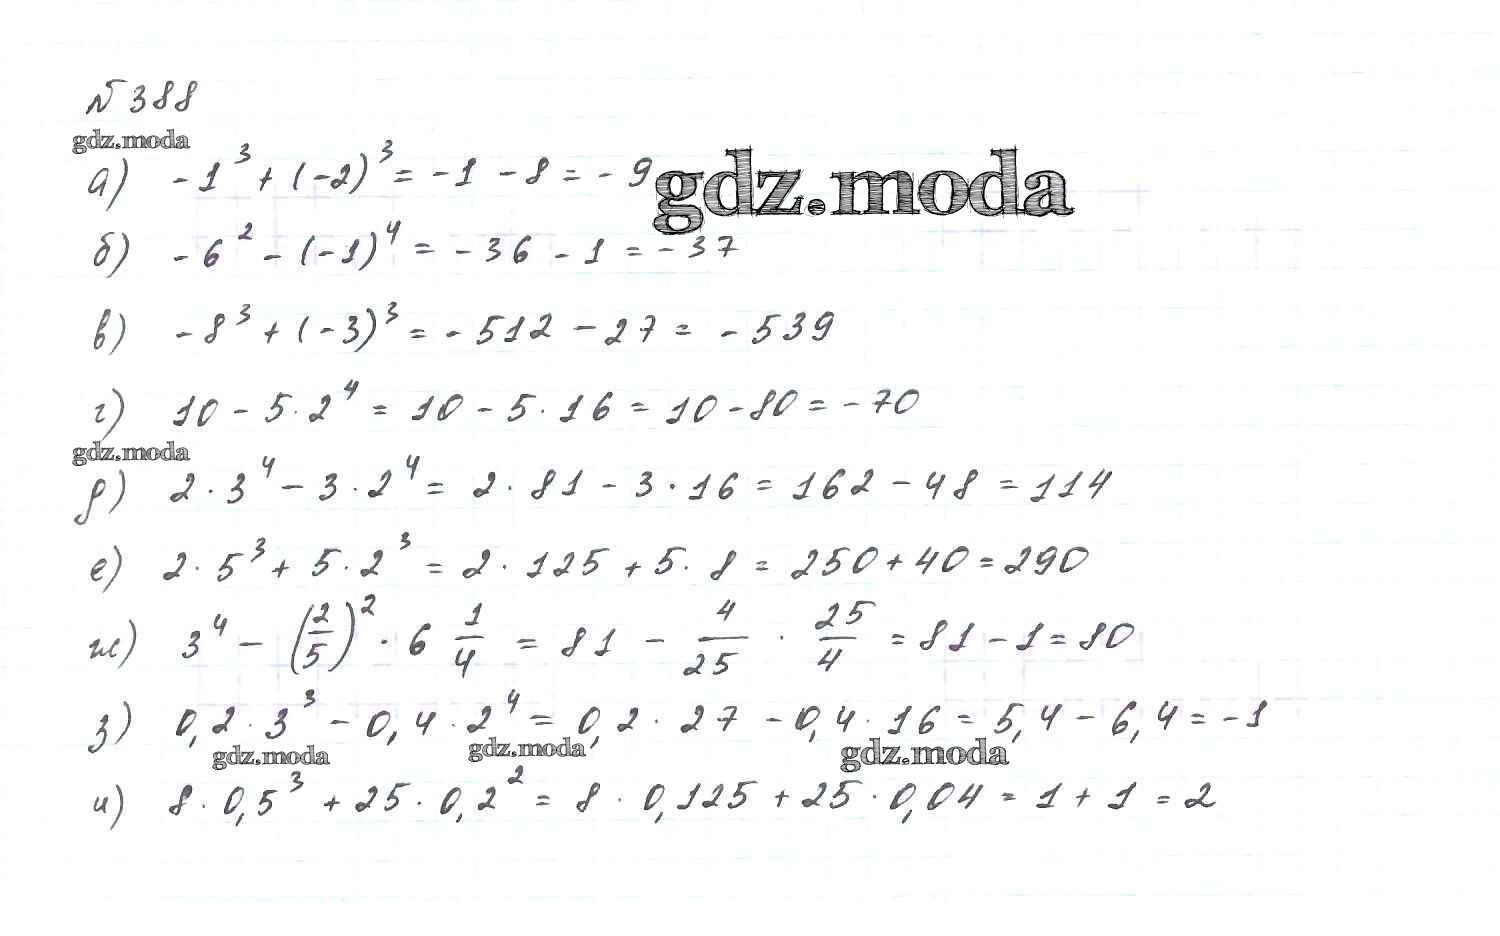 № 388
gdz.moda
а) -1³ + (-2)³ = -1 - 8 = -9
gdz.moda
б) -6² - (-1)⁴ = -36 - 1 = -37
в) -8³ + (-3)³ = -512 - 27 = -539
г) 10 - 5·2⁴ = 10 - 5·16 = 10 - 80 = -70
gdz.moda
д) 2·3⁴ - 3·2⁴ = 2·81 - 3·16 = 162 - 48 = 114
е) 2·5³ + 5·2³ = 2·125 + 5·8 = 250 + 40 = 290
ж) 3⁴ - (2/5)²·6 1/4 = 81 - 4/25 · 25/4 = 81 - 1 = 80
з) 0,2·3³ - 0,4·2⁴ = 0,2·27 - 0,4·16 = 5,4 - 6,4 = -1
gdz.moda gdz.moda gdz.moda
и) 8·0,5³ + 25·0,2² = 8·0,125 + 25·0,04 = 1 + 1 = 2